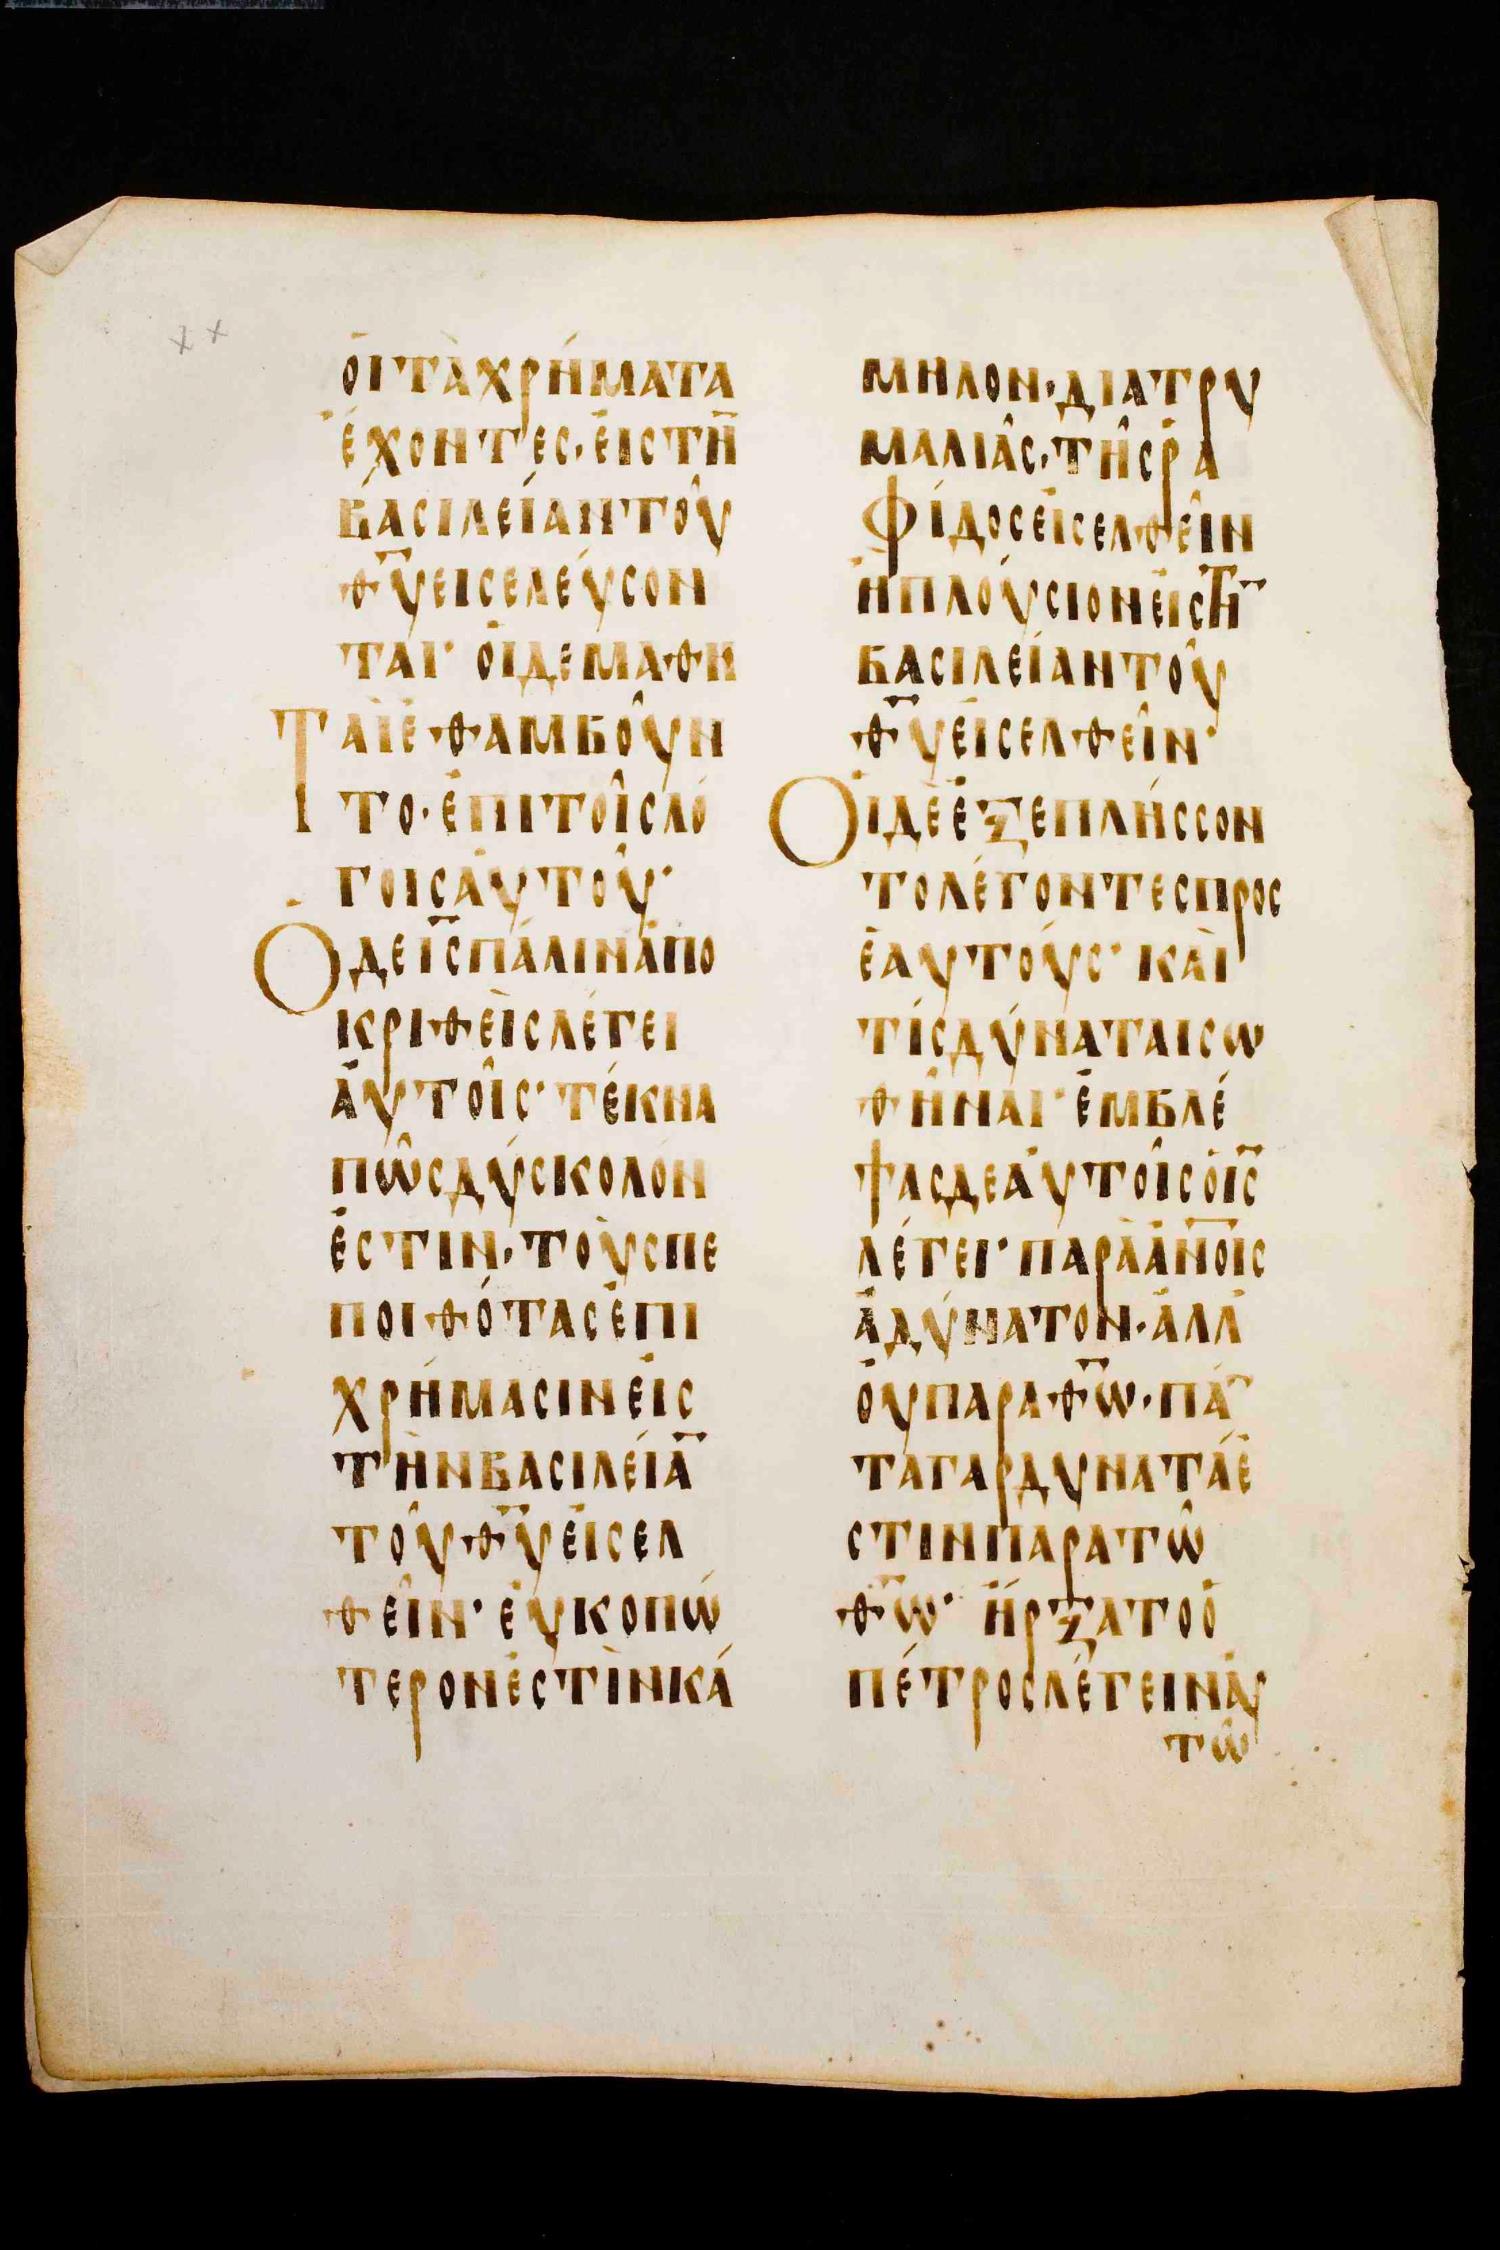 ὁι τὰ χρήματα
ἔχοντες· ἐις τη̅
βασιλείαν τοῦ
θ̅υ̅ εισελέυσον
ται· ὁι δε μαθη
Ταὶ ἐθαμβοῦν
το· ἐπὶ τοῖς λό
γοις ἀυτοῦ·
Ὁ δε ι̅ς̅ πάλιν ἀπο
κριθεὶς λέγει
ἀυτοῖς· τέκνα
πῶς δύσκολόν
ἐστιν· τοὺς πε
ποιθότας ἐπι
χρήμασιν ἐις
τὴν βασιλεία̅
τοῦ θ̅υ̅ ἐισελ
θεῖν· ἐυκοπώ
τερον ἐστὶν κά
μηλον· διατρυ
μαλιᾶς· τῆς ρα
φίδος ἐισελθεῖν
ἢ πλούσιον ἐις τη̅
βασιλείαν τοῦ
θ̅υ̅ ἐισελθεῖν·
Ὁι δὲ ἐξεπλήσσον
το λέγοντες προς
ἑαυτούς· καὶ
τίς δύναται σω
θῆναι· ἐμβλέ
ψας δε ἀυτοῖς ὁ ι̅ς̅
λέγει· παρὰ ἀ̅ν̅ο̅ις
ἀδύνατον· ἀλλ
ὀυ παρα θ̅ω̅· πά̅
τα γαρ δυνατά ἐ
στιν παρα τῶ
θ̅ω̅· ἤρξατο ὁ
πέτρος λέγειν ἀυ
τῶ